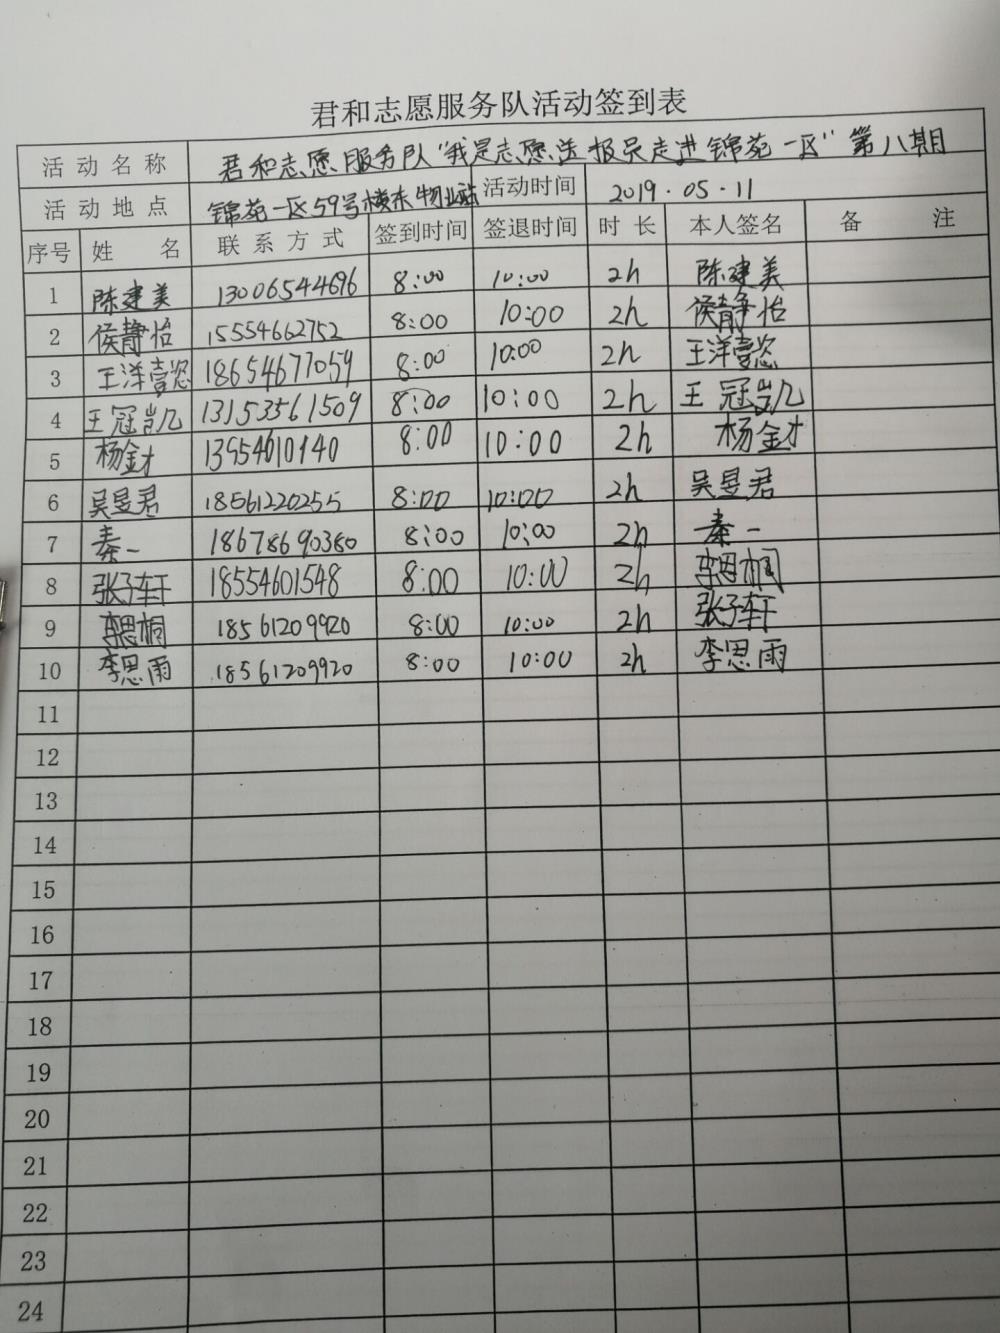 君和志愿服务队活动签到表
活动名称 君和志愿服务队"我是志愿送报员走进锦苑一区"第八期
活动地点 锦苑一区59号楼东物业站 活动时间 2019.05.11
序号 姓名 联系方式 签到时间 签退时间 时长 本人签名 备注
1 陈建美 13006544696 8:00 10:00 2h 陈建美
2 侯静怡 15554662752 8:00 10:00 2h 侯静怡
3 王洋壹恣 18654677059 8:00 10:00 2h 王洋壹恣
4 王冠凯 13153561509 8:00 10:00 2h 王冠凯
5 杨金才 13954610140 8:00 10:00 2h 杨金才
6 吴昱君 18561220255 8:00 10:00 2h 吴昱君
7 秦一 18678690380 8:00 10:00 2h 秦一
8 张子轩 18554601548 8:00 10:00 2h 李思桐
9 李思桐 18561209920 8:00 10:00 2h 张子轩
10 李思雨 18561209920 8:00 10:00 2h 李思雨
11
12
13
14
15
16
17
18
19
20
21
22
23
24